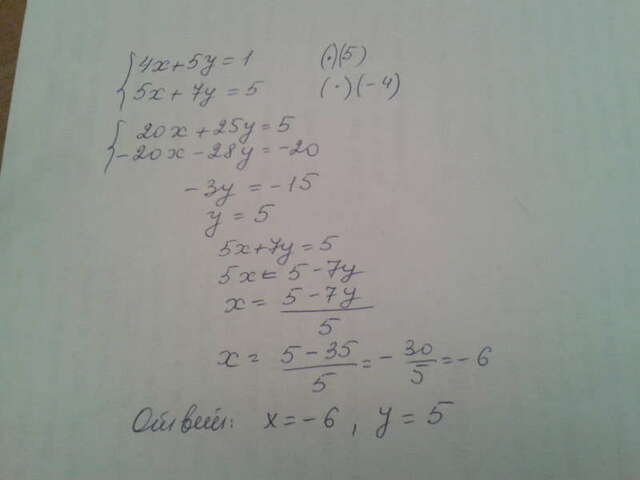 {4x+5y=1 (·)(5)
5x+7y=5 (·)(-4)
{20x+25y=5
-20x-28y=-20
-3y=-15
y=5
5x+7y=5
5x=5-7y
x= 5-7y/5
x= 5-35/5=-30/5=-6
Ответ: x=-6, y=5